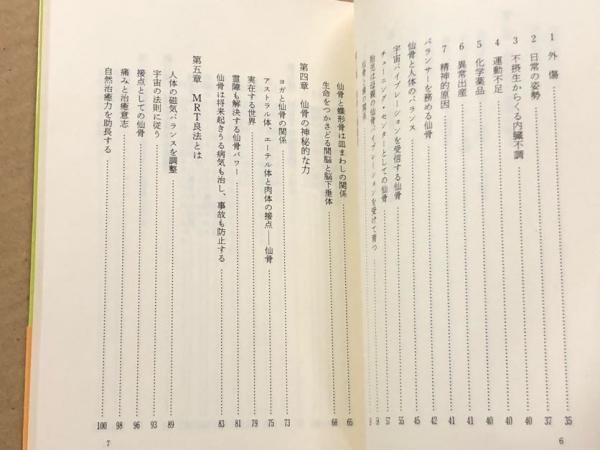 1 外傷 35
2 日常の姿勢 37
3 不摂生からくる内臓不調 40
4 運動不足 40
5 化学薬品 40
6 異常出産 41
7 精神的原因 41
バランサーを務める仙骨 42
仙骨と人体のバランス 45
宇宙バイブレーションを受信する仙骨 55
チューニング・センターとしての仙骨 57
胎児は母親の仙骨バイブレーションを受けて育つ
6
仙骨と蝶形骨は皿まわしの関係 65
生命をつかさどる間脳と脳下垂体 68
第四章 仙骨の神秘的な力
ヨガと仙骨の関係 73
アストラル体、エーテル体と肉体の接点——仙骨 75
実在する世界 79
霊障も解決する仙骨パワー 81
仙骨は将来起きうる病気も治し、事故も防止する 83
第五章 MRT良法とは
人体の磁気バランスを調整 89
宇宙の法則に従う 93
接点としての仙骨 96
痛みと治癒意志 98
自然治癒力を助長する 100
7